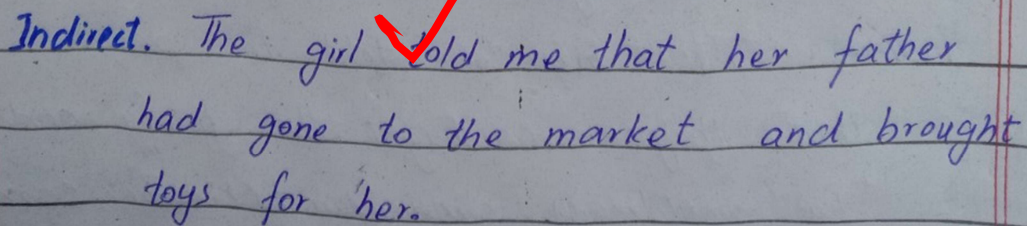 Indirect. The girl told me that her father
had gone to the market and brought
toys for her.